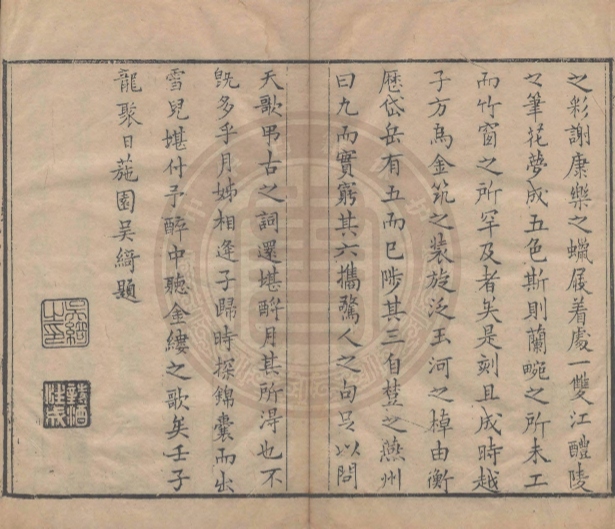 之彩謝康樂之蠟屐着處一雙江醴陵
之筆花夢成五色斯則蘭畹之所未工
而竹窗之所罕及者矣是刻且成時越
子方為金筑之裝旋泛玉河之棹由衡
歷岱岳有五而已陟其三自荁之燕州
曰九而實窮其六攜驚人之句足以問
天歌弔古之詞還堪酹月其所淂也不
旣多乎月姊相逢子歸時探錦囊而出
雪兒堪付予醉中聽金縷之歌矣壬子
龍聚日蓏園吳綺題
吳綺之印